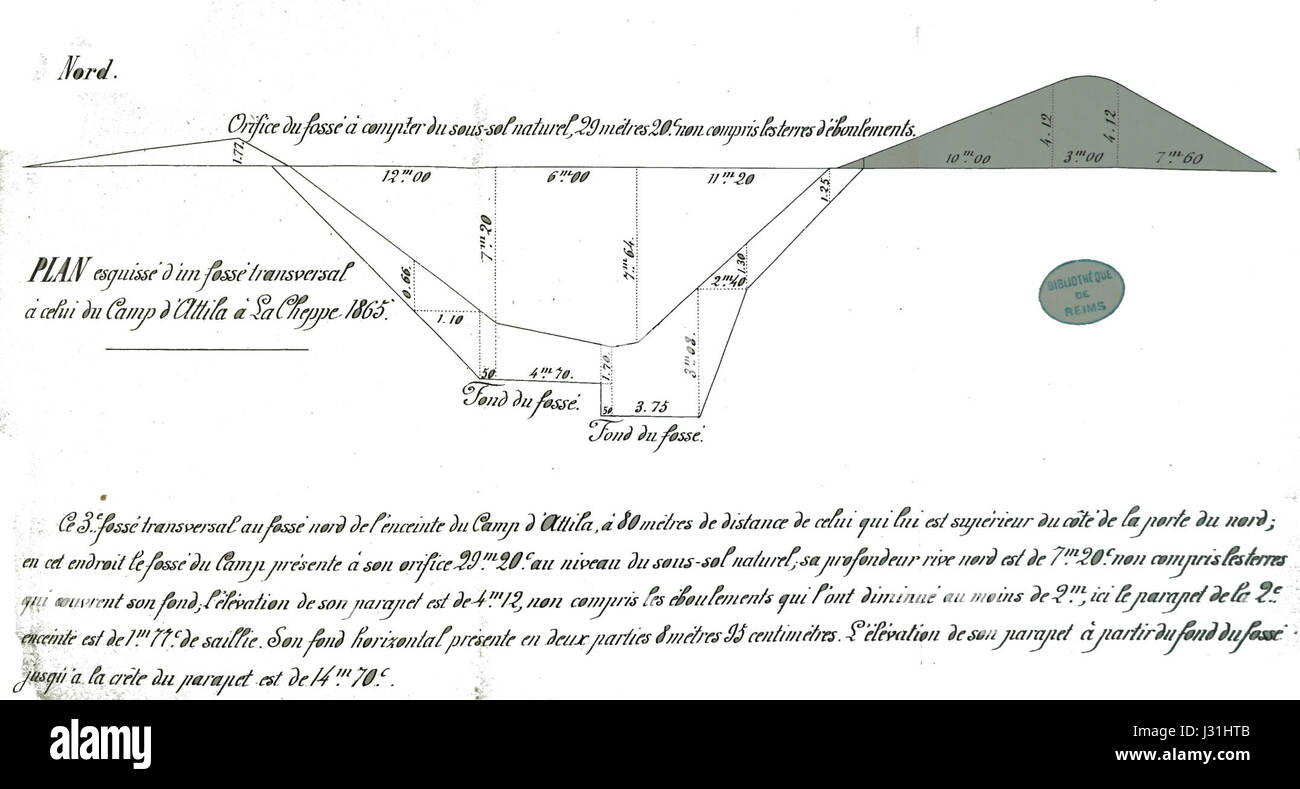 Nord.
Orifice du fossé à compter du sous-sol naturel, 29 mètres 20.c non compris les terres d'éboulements.
1.77.
4.12
4.12
10m00
3m00
7m60
12m00
6m00
11m20
1.25
7m20
7m64
PLAN esquissé d'un fossé transversal
à celui du Camp d'Attila à La Cheppe 1865.
0.66
1.30
2m40
1.10
BIBLIOTHÈQUE
DE
REIMS
3m08
50
4m70.
1.70
Fond du fossé.
50
3.75
Fond du fossé.
Ce 3.e fossé transversal au fossé nord de l'enceinte du Camp d'Attila, à 80 mètres de distance de celui qui lui est supérieur du côté de la porte du nord;
en cet endroit le fossé du Camp présente à son orifice 29m20c au niveau du sous-sol naturel; sa profondeur rive nord est de 7m20c non compris les terres
qui couvrent son fond; l'élévation de son parapet est de 4m12, non compris les éboulements qui l'ont diminué au moins de 2m, ici le parapet de la 2e
enceinte est de 1m77c de saillie. Son fond horizontal présente en deux parties 8 mètres 95 centimètres. L'élévation de son parapet à partir du fond du fossé
jusqu'a la crête du parapet est de 14m70c.
alamy
Image ID: J31HTB
www.alamy.com